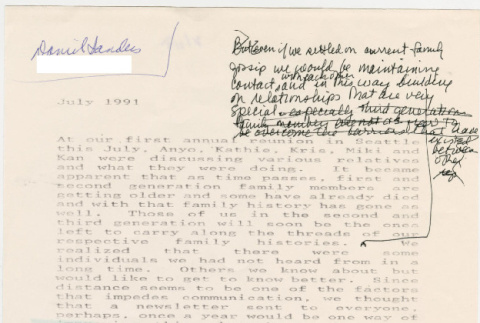 Daniel Sanders
But even if we settled on current family
gossip we would be maintaining
contact with each other and in this way building
on relationships that are very
special especially third generation
family members
be overcome the barriers that have
existed
each
other
July 1991
At our first annual reunion in Seattle
this July, Anyo, Kathie, Kris, Miki and
Kan were discussing various relatives
and what they were doing. It became
apparent that as time passes, first and
second generation family members are
getting older and some have already died
and with that family history has gone as
well. Those of us in the second and
third generation will soon be the ones
left to carry along the threads of our
respective family histories. We
realized that there were some
individuals we had not heard from in a
long time. Others we know about but
would like to get to know better. Since
distance seems to be one of the factors
that impedes communication, we thought
that a newsletter sent to everyone,
perhaps, once a year would be one way of